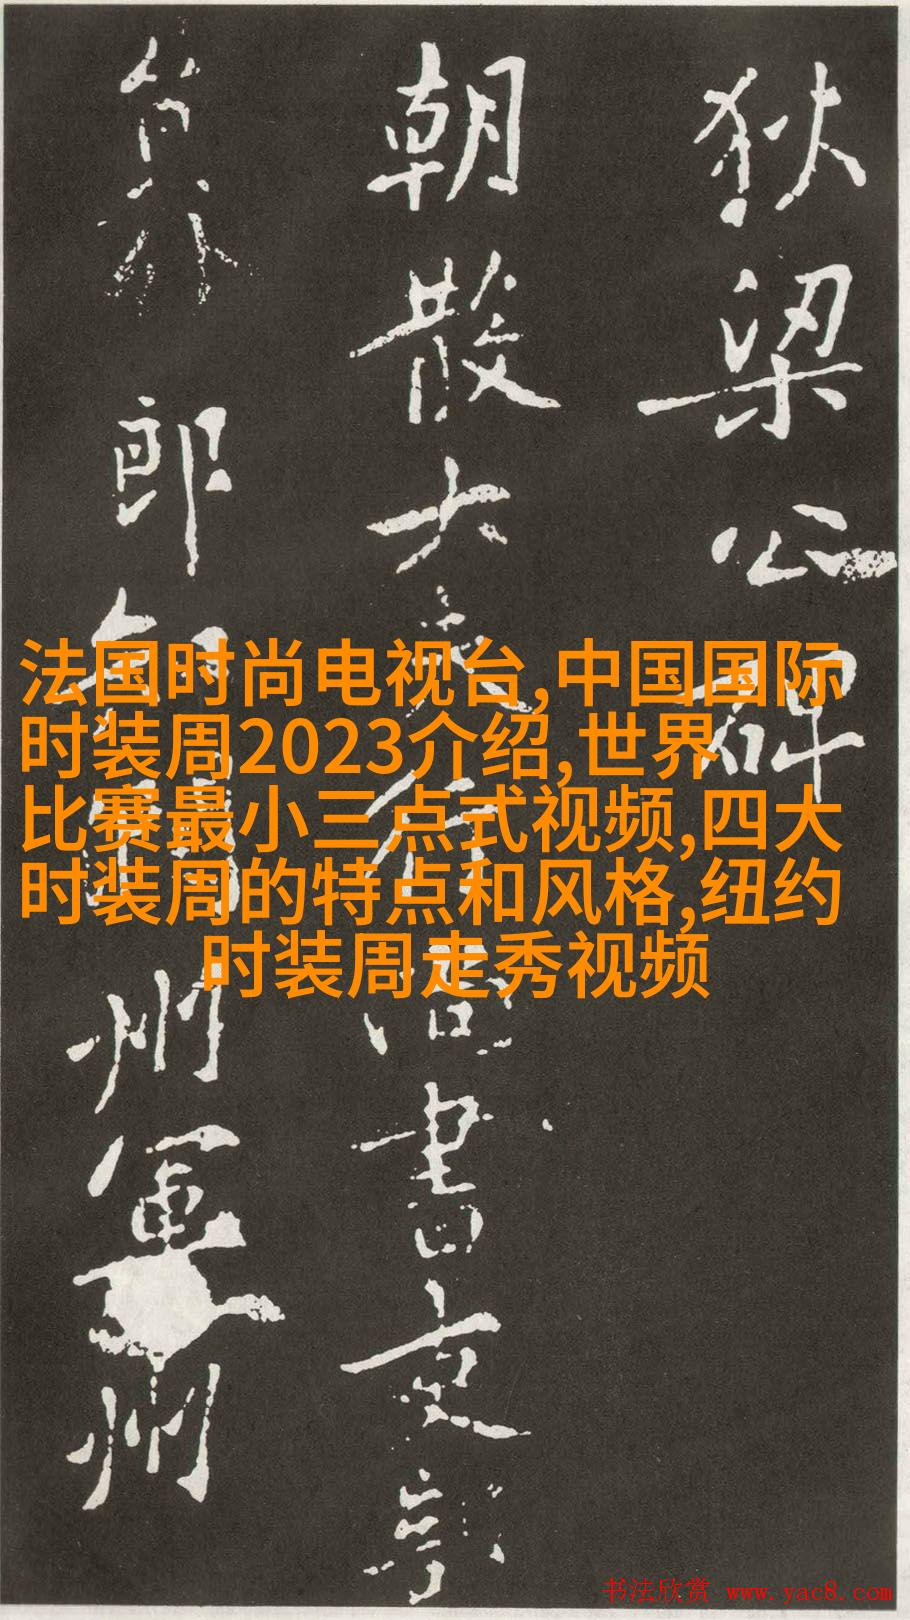 狄梁公碑
朝散大夫行尚書吏
員外郎知潤州軍州
法国时尚电视台,中国国际
时装周2023介绍,世界
比赛最小三点式视频,四大
时装周的特点和风格,纽约
时装周走秀视频
书法欣赏 www.yac8.com